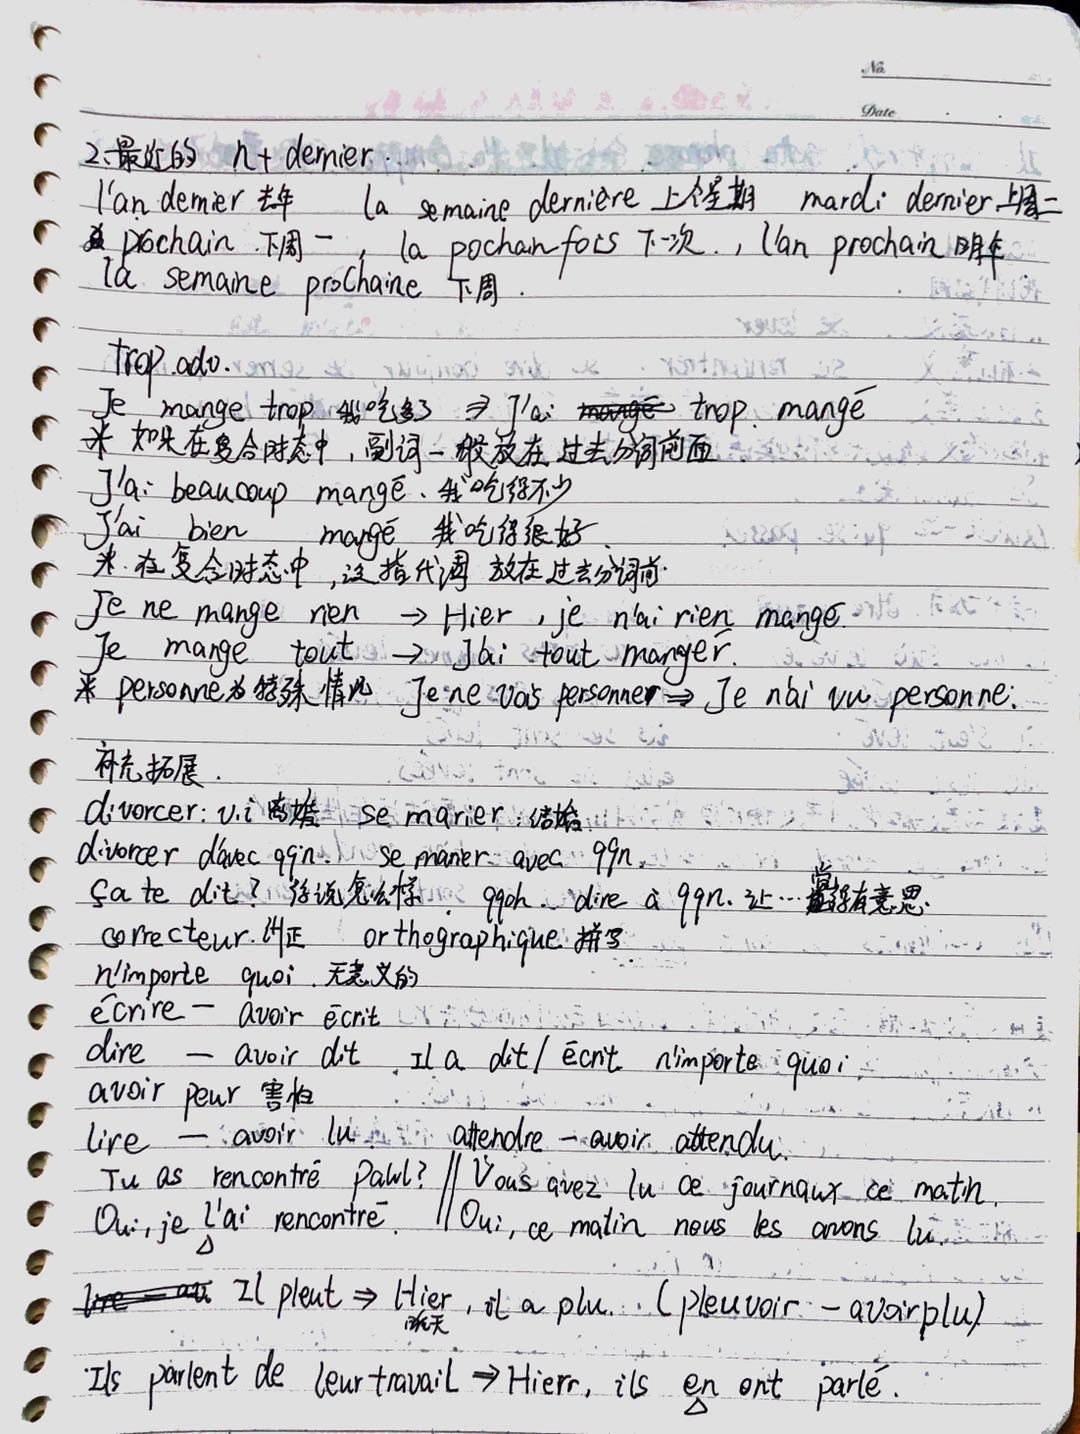 No.
Date
2.最近的 n+ dernier
l'an dernier 去年 la semaine dernière 上个星期 mardi dernier 上周二
prochain 下周一, la pochain fois 下一次., l'an prochain 明年
la semaine prochaine 下周.
trop.adv.
Je mange trop 我吃多了 ⇒ J'ai trop mangé
* 如果在复合时态中,副词一般放在过去分词前面
J'ai beaucoup mangé. 我吃得不少
J'ai bien mangé 我吃得很好.
* 在复合时态中,泛指代词 放在过去分词前.
Je ne mange rien → Hier, je n'ai rien mangé.
Je mange tout → J'ai tout manger.
* personne为特殊情况 Je ne vois personner ⇒ Je n'ai vu personne.
补充拓展.
divorcer: v.i 离婚 se marier 结婚
divorcer d'avec qqn. se marier avec qqn.
ça te dit? 你说怎么样. qqch. dire à qqn. 让…觉得有意思.
correcteur. 纠正 orthographique 拼写
n'importe quoi. 无意义的
écrire — avoir écrit
dire — avoir dit. Il a dit / écrit n'importe quoi
avoir peur 害怕
lire — avoir lu attendre — avoir attendu.
Tu as rencontré Pawl? // Vous avez lu ce journaux ce matin.
Oui, je l'ai rencontré. // Oui, ce matin nous les avons lu.
Il pleut ⇒ Hier, il a plu. (pleuvoir — avoir plu)
昨天
Ils parlent de leur travail ⇒ Hierr, ils en ont parlé.